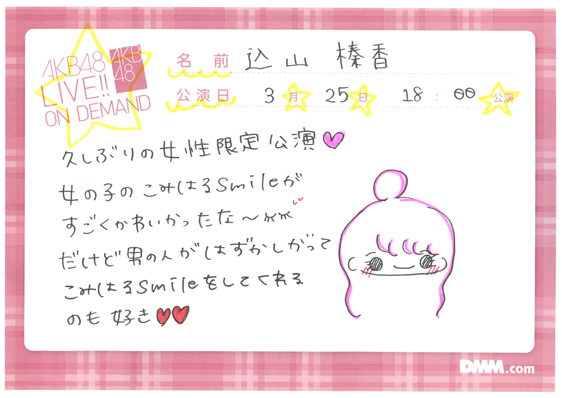 AKB48
LIVE!!
ON DEMAND
AKB
48
名前 込山 榛香
公演日 3月 25日 18:00 公演
久しぶりの女性限定公演
女の子のこみはるsmileが
すごくかわいかったな〜
だけど男の人がはずかしがって
こみはるsmileをしてくれる
のも好き
DMM.com